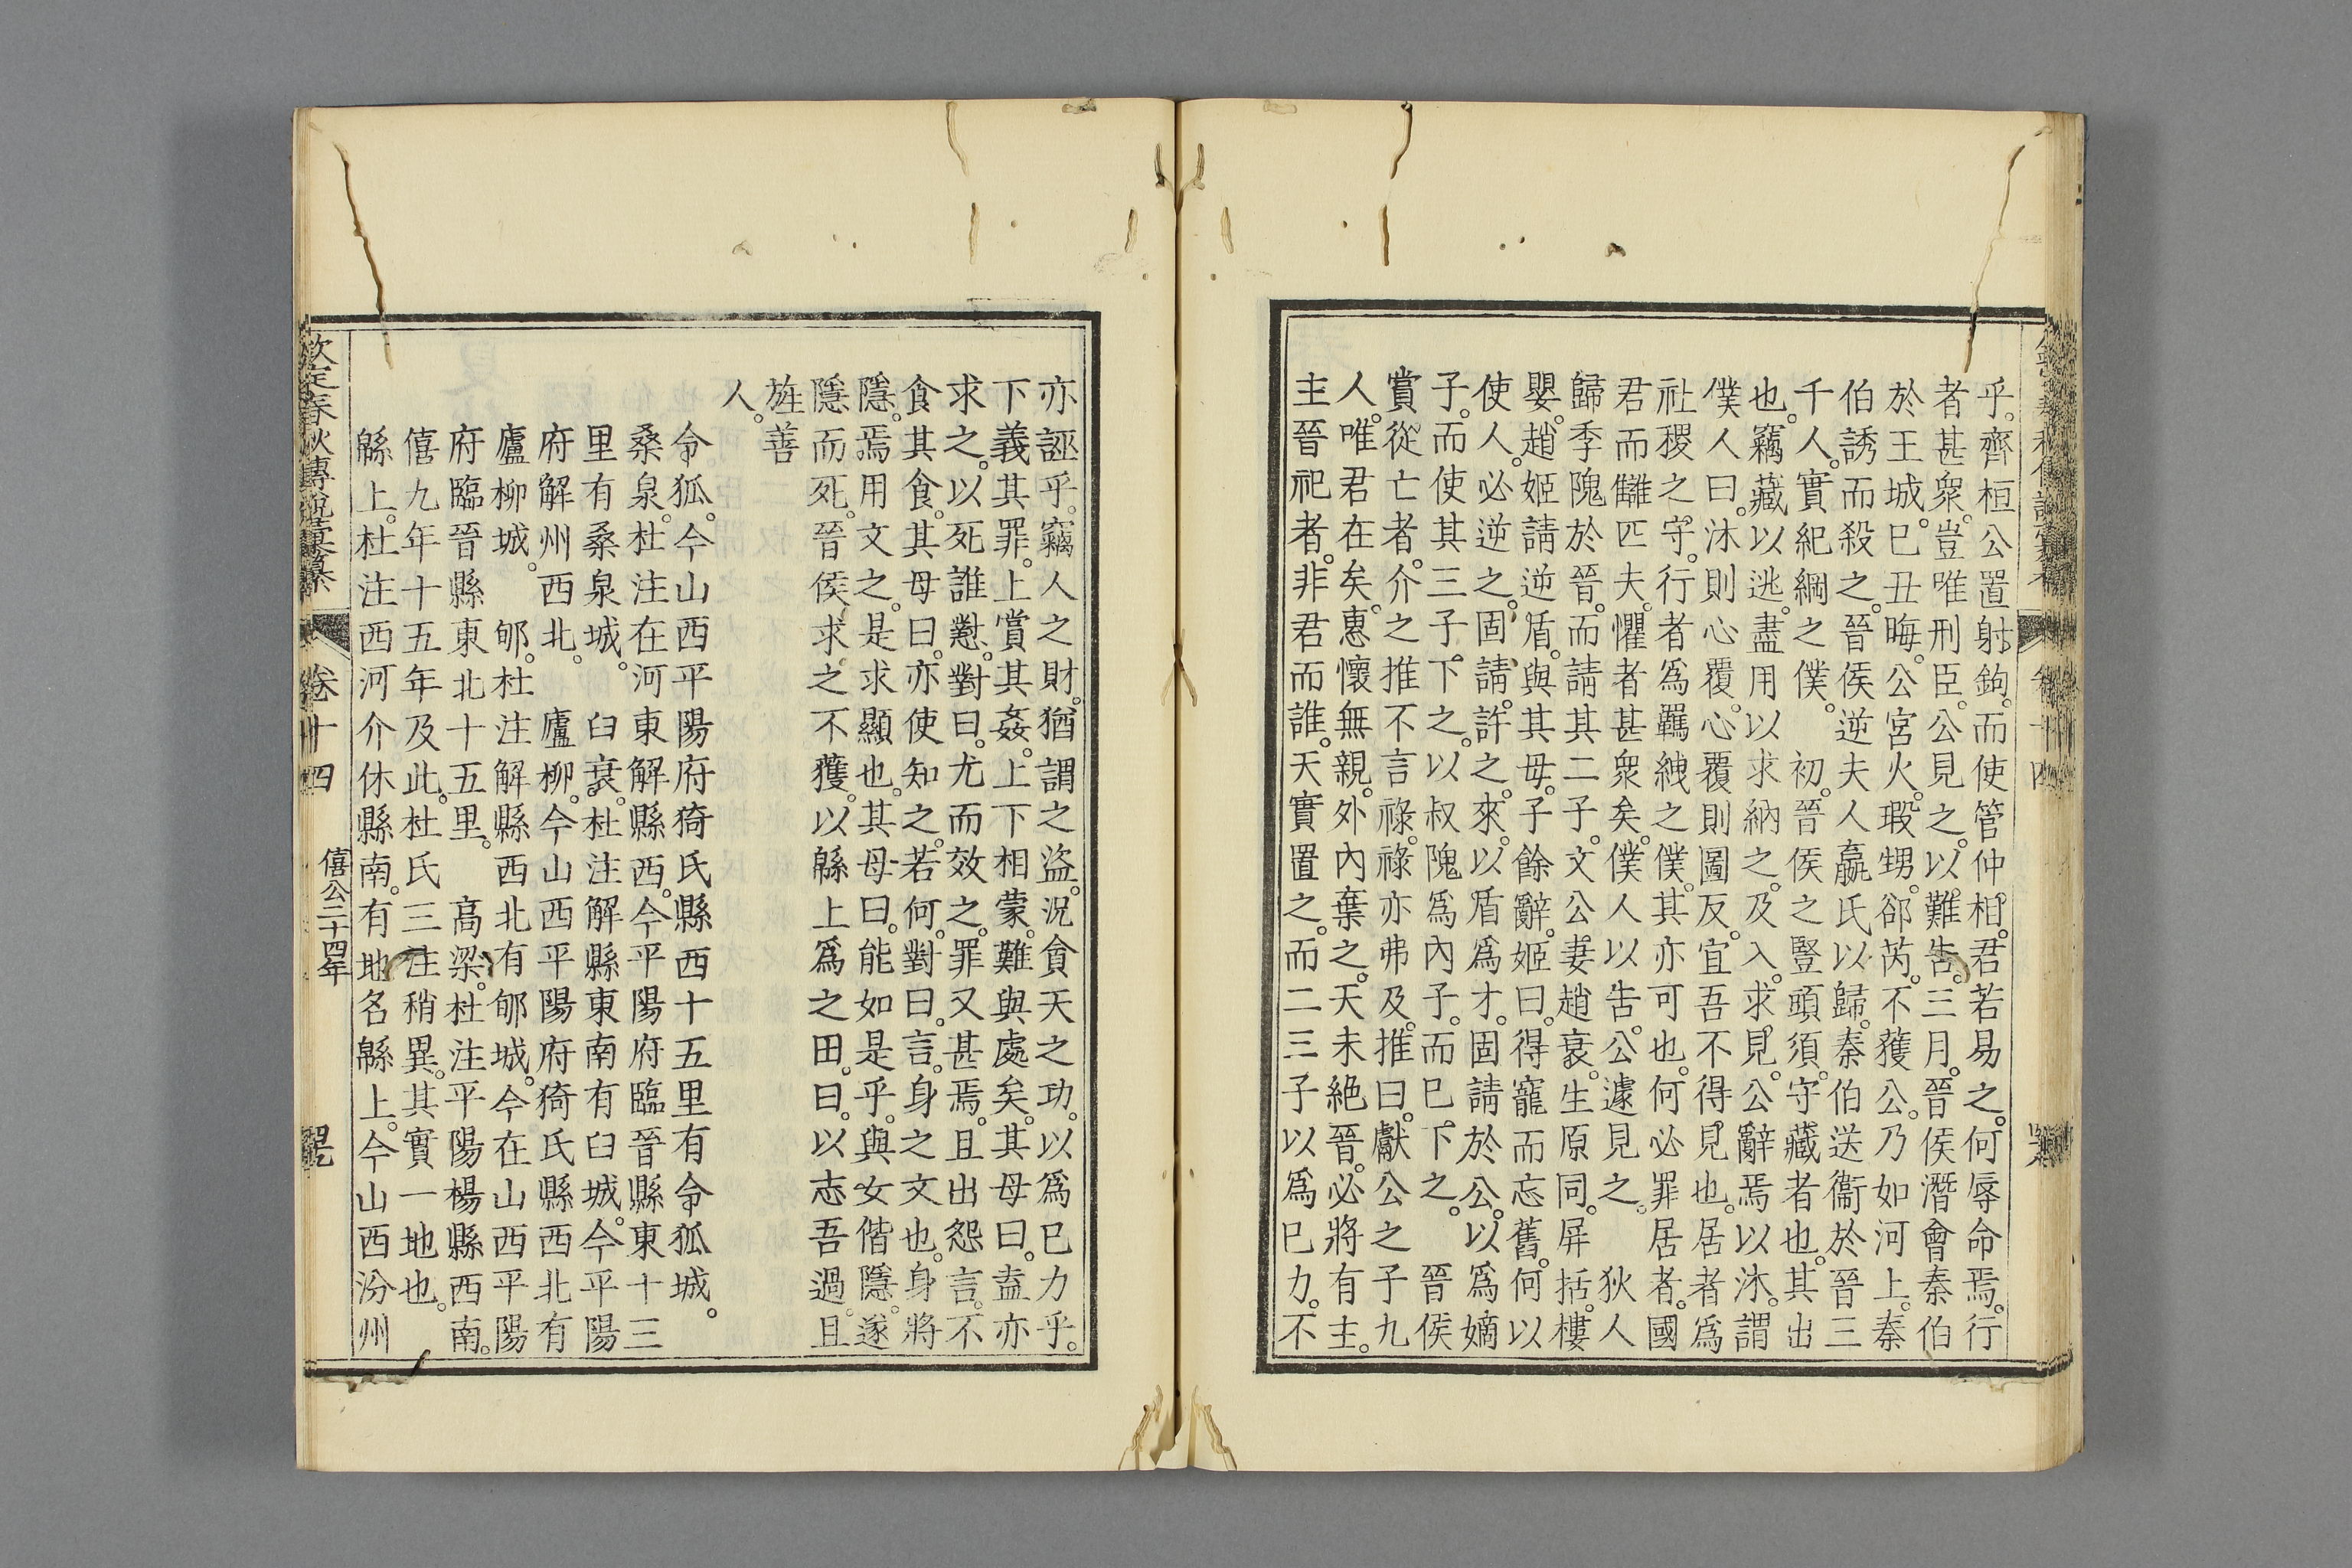 乎。齊桓公置射鉤。而使管仲相。君若易之。何辱命焉。行
者甚衆。豈唯刑臣。公見之。以難告。三月。晉侯潛會秦伯
於王城。巳丑晦。公宮火。瑕甥。郤芮。不獲公。乃如河上。秦
伯誘而殺之。晉侯逆夫人嬴氏以歸。秦伯送衞於晉三
千人。實紀綱之僕。　初。晉侯之豎頭須。守藏者也。其出
也。竊藏以逃。盡用以求納之。及入。求見。公辭焉以沐。謂
僕人曰。沐則心覆。心覆則圖反。宜吾不得見也。居者爲
社稷之守。行者爲羈絏之僕。其亦可也。何必罪居者。國
君而讎匹夫。懼者甚衆矣。僕人以告。公遽見之。　狄人
歸季隗於晉。而請其二子。文公妻趙衰。生原同。屛括。樓
嬰。趙姬請逆盾。與其母。子餘辭。姬曰。得寵而忘舊。何以
使人。必逆之。固請。許之。來。以盾爲才。固請於公。以爲嫡
子。而使其三子。下之。以叔隗爲內子。而巳下之。　晉侯
賞從亡者。介之推不言祿。祿亦弗及。推曰。獻公之子九
人。唯君在矣。惠懷無親。外內棄之。天未絕晉。必將有主。
主晉祀者。非君而誰。天實置之。而二三子以爲巳力。不
亦誣乎。竊人之財。猶謂之盜。況貪天之功。以爲巳力乎。
下義其罪。上賞其姦。上下相蒙。難與處矣。其母曰。盍亦
求之。以死誰懟。對曰。尤而效之。罪又甚焉。且出怨言。不
食其食。其母曰。亦使知之。若何。對曰。言。身之文也。身將
隱。焉用文之。是求顯也。其母曰。能如是乎。與女偕隱。遂
隱而死。晉侯求之不獲。以緜上爲之田。曰。以志吾過。且
旌善
人。
令狐。今山西平陽府猗氏縣西十五里有令狐城。
桑泉。杜注在河東解縣西。今平陽府臨晉縣東十三
里有桑泉城。　臼衰。杜注解縣東南有臼城。今平陽
府解州西北。　廬柳。今山西平陽府猗氏縣西北有
廬柳城。　郇。杜注解縣西北有郇城。今在山西平陽
府臨晉縣東北十五里。　高梁。杜注平陽楊縣西南。
僖九年十五年及此。杜氏三注稍異。其實一地也。
緜上。杜注西河介休縣南。有地名緜上。今山西汾州
欽定春秋傳說彙纂　卷十四　僖公二十四年